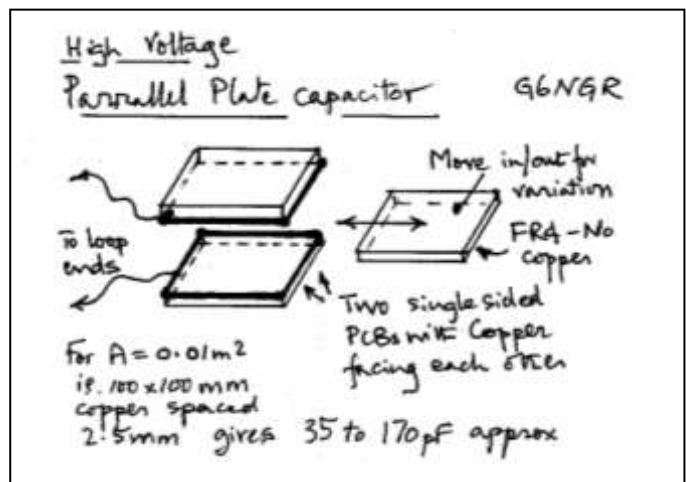 High Voltage
Parrallel Plate capacitor G6NGR
Move in/out for
variation
To loop
ends
FR4-No
copper
Two single sided
PCBs with Copper
facing each other
For A = 0.01m²
ie. 100 x 100 mm
copper spaced
2.5mm gives 35 to 170pF approx